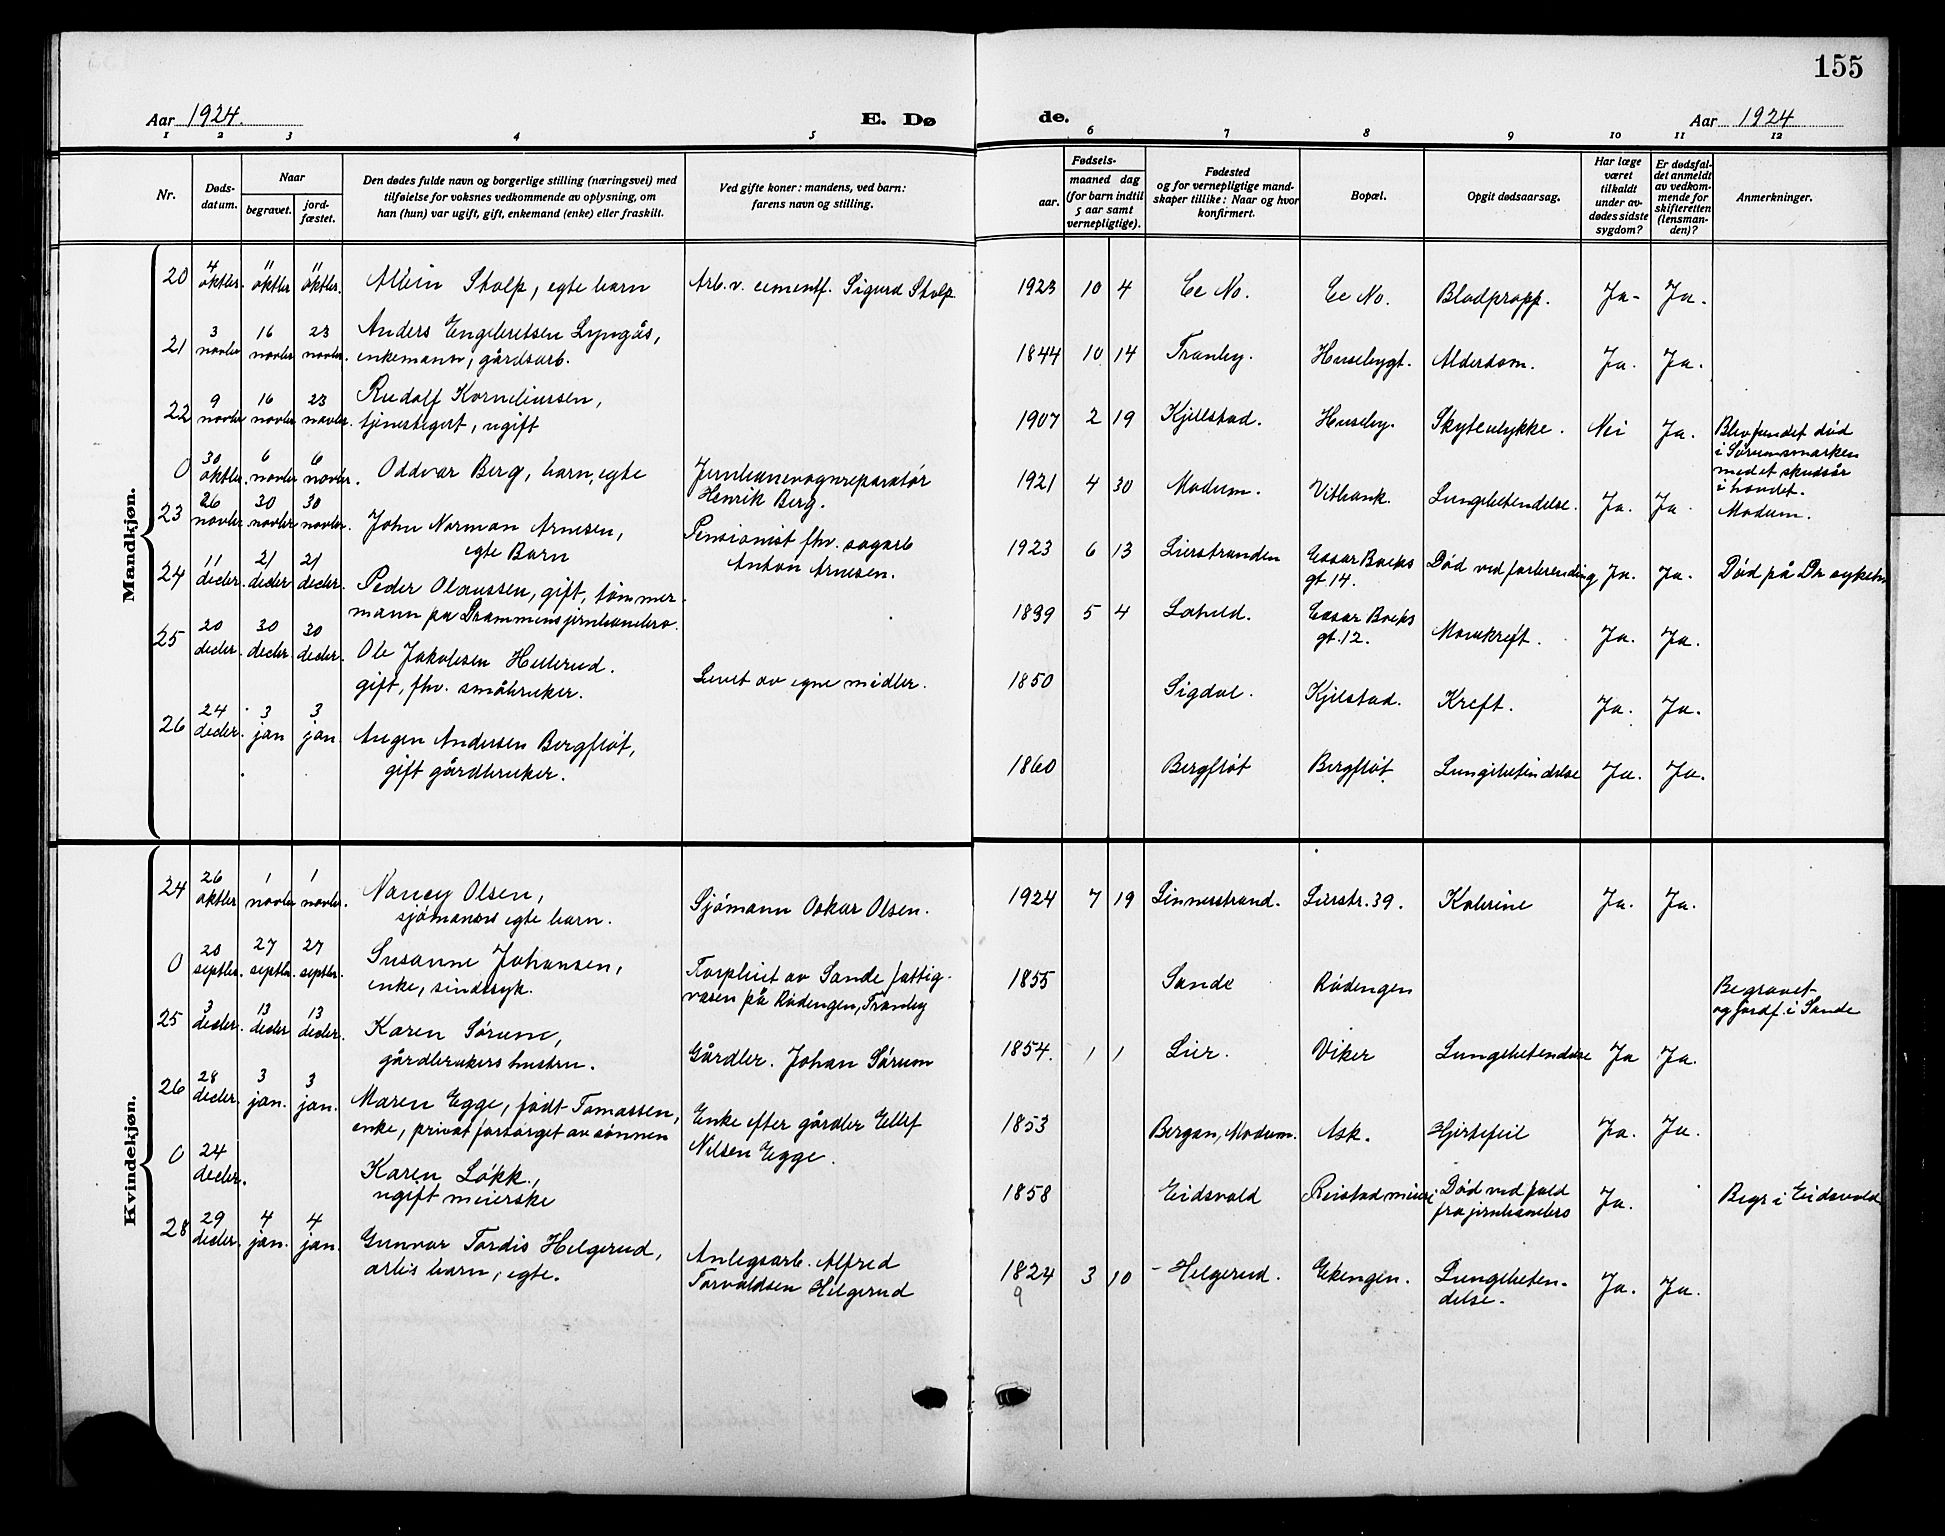 155
Aar 1924.
E. Dø
de.
Aar 1924
1 2 3 4 5 6 7 8 9 10 11 12
Nr.
Døds-
datum.
Naar
begravet.
jord-
fæstet.
Den dødes fulde navn og borgerlige stilling (næringsvei) med
tilføielse for voksnes vedkommende av oplysning, om
han (hun) var ugift, gift, enkemand (enke) eller fraskilt.
Ved gifte koner: mandens, ved barn:
farens navn og stilling.
Fødsels-
aar.
maaned dag
(for barn indtil
5 aar samt
vernepligtige).
Fødested
og for vernepligtige mand-
skaper tillike: Naar og hvor
konfirmert.
Bopæl.
Opgit dødsaarsag.
Har læge
været
tilkaldt
under av-
dødes sidste
sygdom?
Er dødsfal-
det anmeldt
av vedkom-
mende for
skifteretten
(lensman-
den)?
Anmerkninger.
Mandkjøn.
20 4 oktbr. 11 oktbr 11 oktbr. Albin Stolp, egte barn Arb. v. cementf. Sigurd Stolp 1923 10 4 Ee No. Ee No. Blodpropp. Ja- Ja.
21 3 novbr 16 novbr 23 novbr. Anders Engebretsen Lyngås,
enkemann, gårdsarb. 1844 10 14 Tranby. Husebygt. Alderdom. Ja. Ja.
22 9 novbr 16 novbr 23 novbr. Rudolf Korneliussen,
tjenestegut, ugift 1907 2 19 Kjellstad. Huseby. Skyteulykke. Nei Ja. Blev fundet død
i Sørumsmarken
med et skudsår
i hovdet.
0 30 oktbr. 6 novbr 6 novbr. Oddvar Berg, barn, egte Jernbanevognreparatør
Henrik Berg. 1921 4 30 Modum. Vitbank. Lungebetendelse. Ja. Ja. Modum.
23 26 novbr 30 novbr 30 novbr. John Norman Arnesen,
egte Barn Pensionist fhv. sagarb
Anton Arnesen. 1923 6 13 Lierstranden Cesar Boeks
gt. 14. Død ved forbrending Ja. Ja. Død på Dr sykeh
24 11 decbr. 21 decbr 21 decbr. Peder Olaussen, gift, tømmer-
mann på Drammensjernbanebro. 1899 5 4 Cesar Boeks
gt. 12. Mavekreft. Ja. Ja.
25 20 decbr. 30 decbr. 30 decbr. Ole Jakobsen Hellerud.
gift, fhv. småbruker. Levet av egne midler. 1850 Sigdal. Kjelstad. Kreft. Ja. Ja.
26 24 decbr. 3 jan 3 jan. Augen Andersen Bergfløt,
gift gårdbruker. 1860 Bergfløt Bergfløt Lungebetendelse Ja. Ja.
Kvindekjøn.
24 26 oktbr 1 novbr 1 novbr. Nancy Olsen,
sjømanns egte barn. Sjømann Oskar Olsen. 1924 7 19 Linnesstrand. Lierstr. 39. Kolerine Ja. Ja.
0 20 septbr. 27 septbr. 27 septbr. Susanne Johansen,
enke, sindssyk. Forpleiet av Sande fattig-
væsen på Rødengen, Tranby 1855 Sande Rødengen Begravet
og jordf. i Sande
25 3 decbr. 13 decbr 13 decbr. Karen Sørum,
gårdbrukers hustru. Gårdbr. Johan Sørum 1854. 1 1 Lier. Viker Lungebetendelse Ja Ja.
26 28 decbr. 3 jan. 3 jan. Maren Egge, født Tomassen,
enke, privat forsørget av sønnen Enke efter gårdbr Ellef
Nilsen Egge. 1853 Bergan, Modum. Ask. Hjertefeil Ja. Ja.
0 24 decbr. Karen Løkk.,
ugift meierske 1858 Eidsvold Reistad meieri Død ved fald
fra jernbanebro Ja. Begr i Eidsvold
28 29 decbr. 4 jan. 4 jan. Gunvor Tordis Helgerud,
arb's barn, egte. Anlegsarb. Alfred
Torvaldsen Helgerud 1824 3 10 Helgerud. Ekengen. Lungebeten-
delse. Ja. Ja.
9